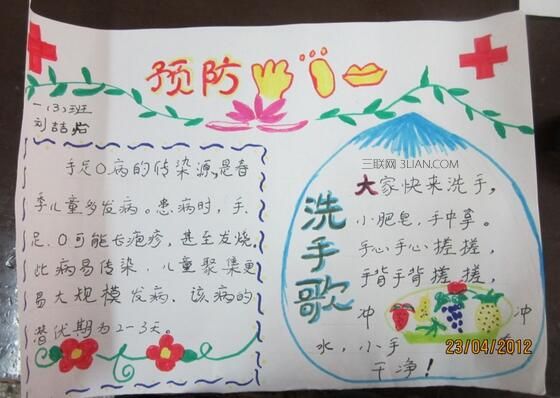 预防
一(3)班
刘喆
手足O病的传染源,是春
季儿童多发病。患病时,手、
足、O可能长疱疹,甚至发烧.
此病易传染,儿童聚集更
易大规模发病.该病的
潜伏期为2-3天。
三联网 3LIAN.COM
洗手歌
大家快来洗手,
小肥皂,手中拿。
手心手心搓搓,
手背手背搓搓,
冲 冲
水,小手
干净!
23/04/2012